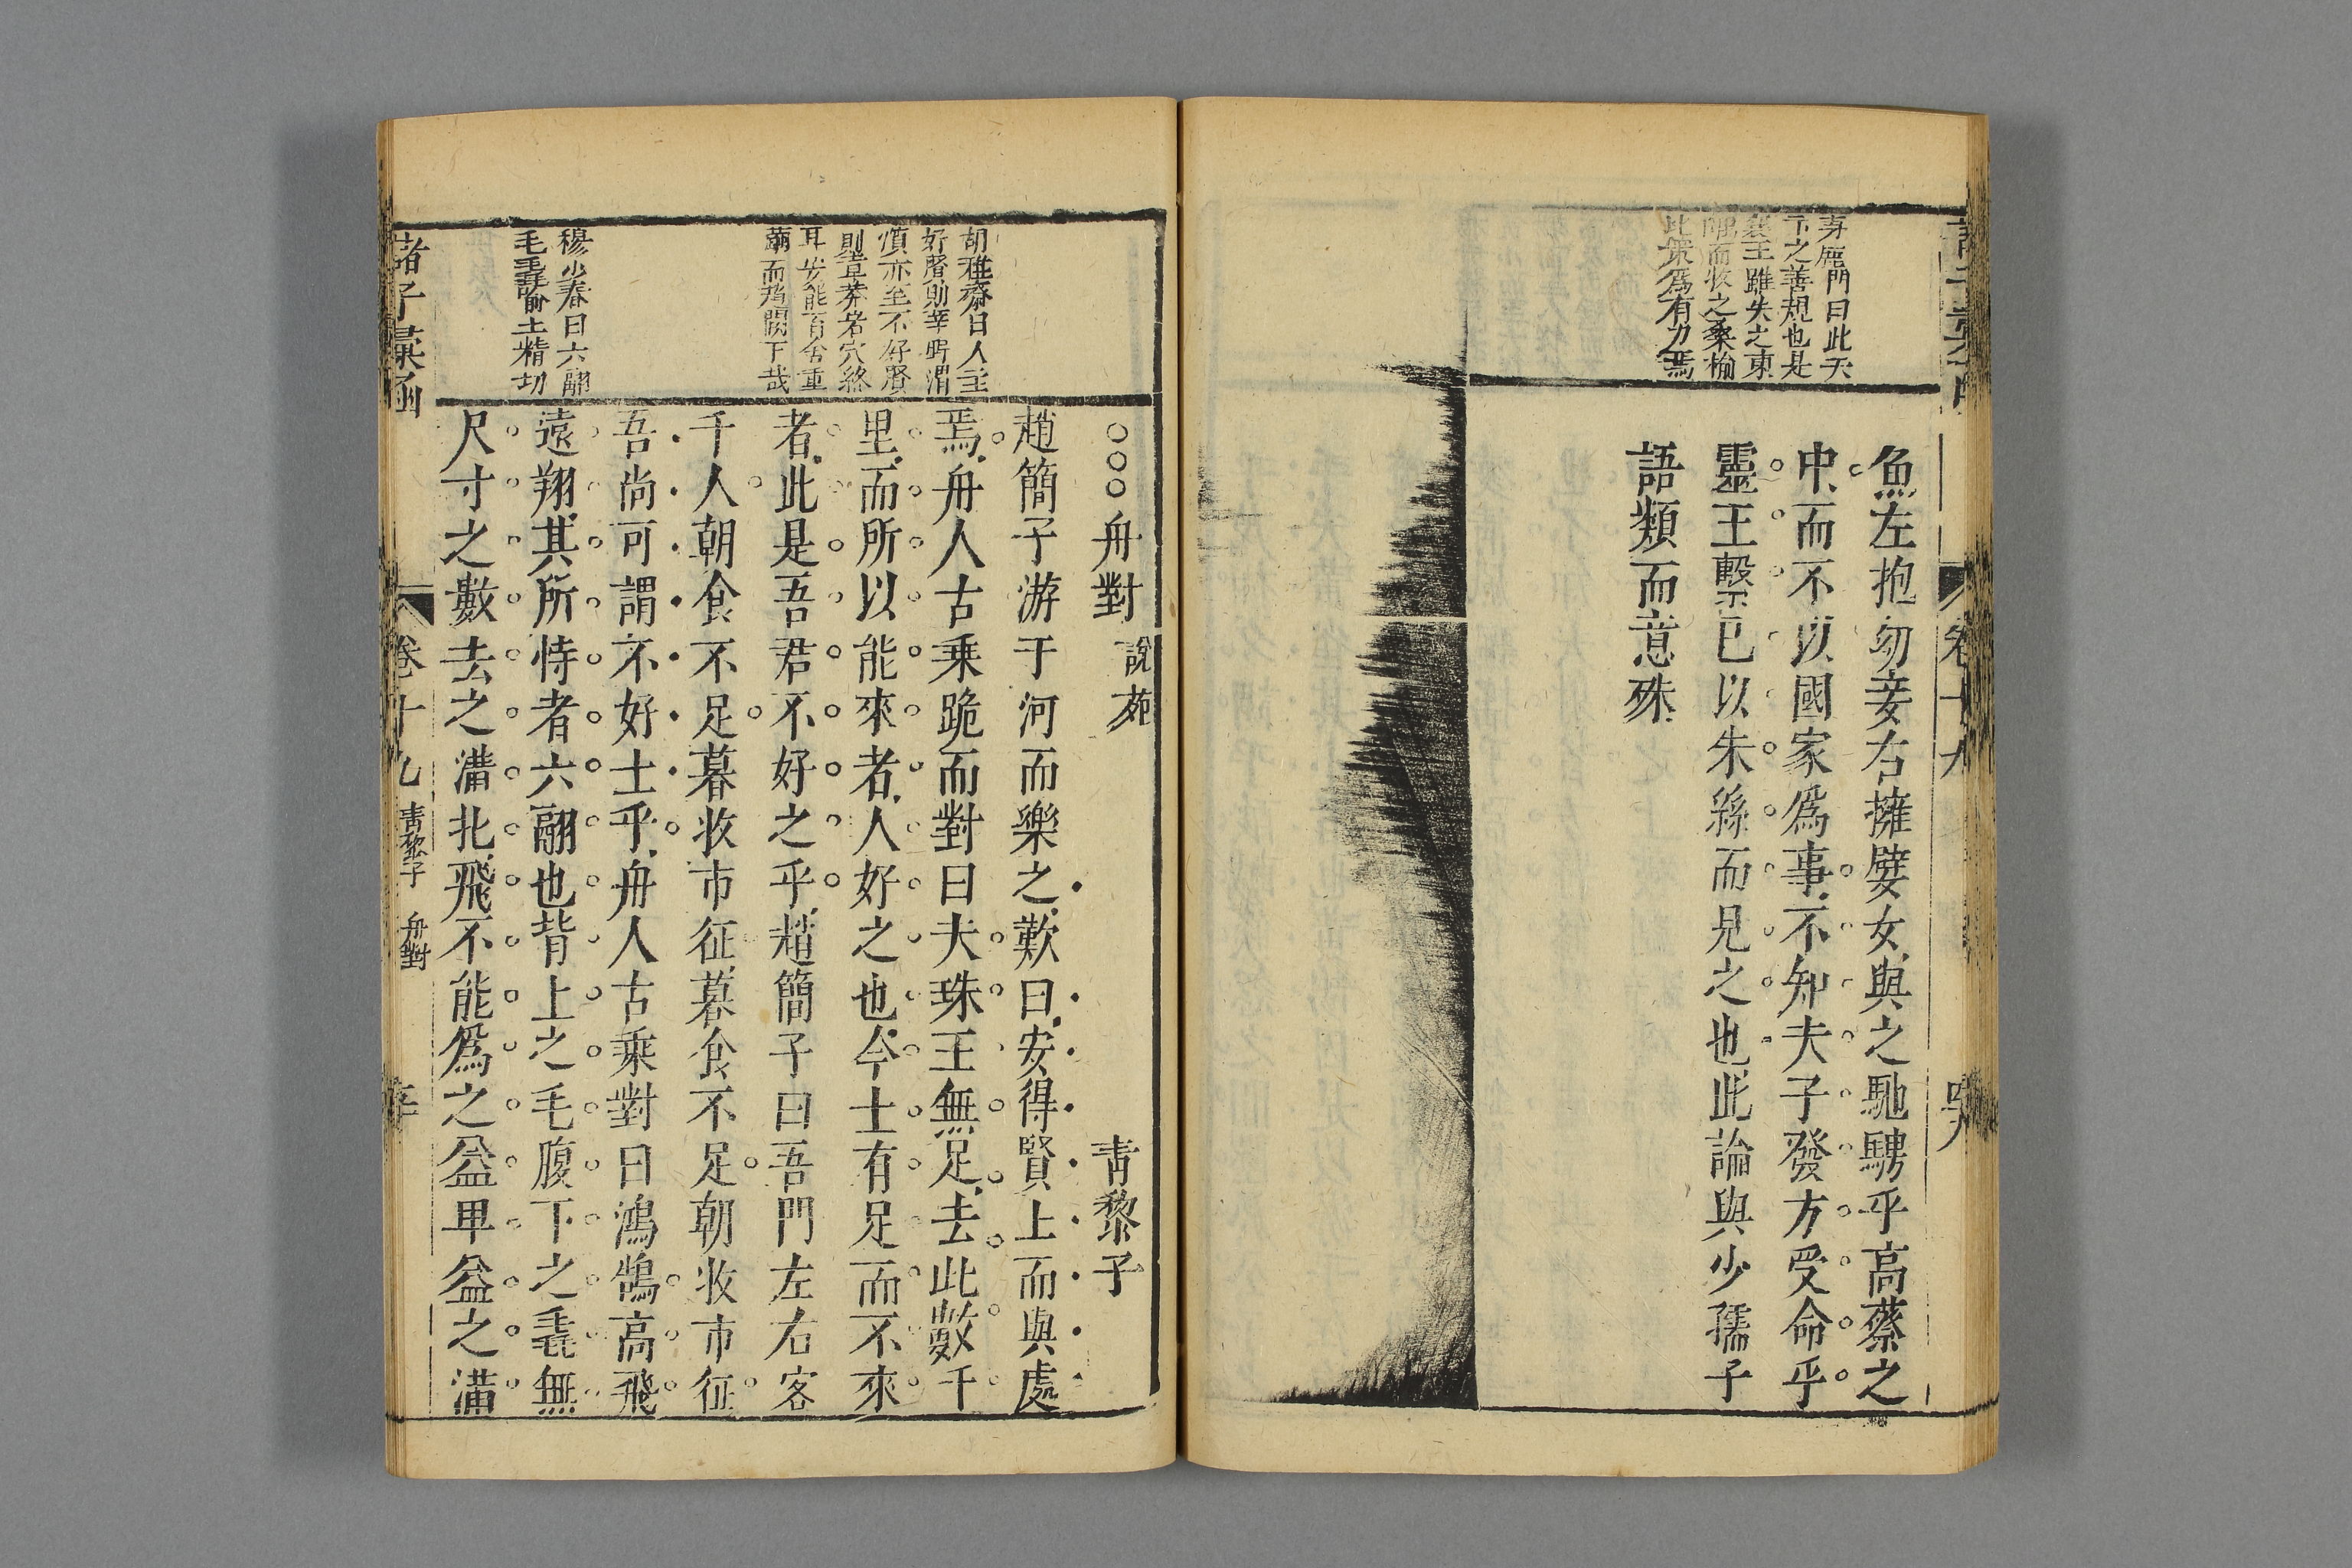 茅鹿門曰此天
下之善規也是
襄王雖失之東
隅而收之桑榆
比策爲有力焉
魚左抱幼妾右擁嬖女與之馳騁乎高蔡之
中而不以國家爲事不知夫子發方受命乎
靈王繫已以朱絲而見之也此論與少孺子
語類而意殊
卷十九
○○○舟對 說苑 青黎子
胡雅齋曰人主
好賢則莘
亦至不好賢
則草莽岩穴終
耳安能百舍重
繭而闕下哉
穆少春曰六翮
毛毳喻士精切
趙簡子游于河而樂之歎曰安得賢士而與處
焉舟人古乘跪而對曰夫珠玉無足去此數千
里而所以能來者人好之也今士有足而不來
者此是吾君不好之乎趙簡子曰吾門左右客
千人朝食不足暮收市征暮食不足朝收市征
吾尚可謂不好士乎舟人古乘對曰鴻鵠高飛
遠翔其所恃者六翮也背上之毛腹下之毳無
尺寸之數去之滿把飛不能爲之益卑益之滿
諸子彙函 卷十九 青黎子 舟對